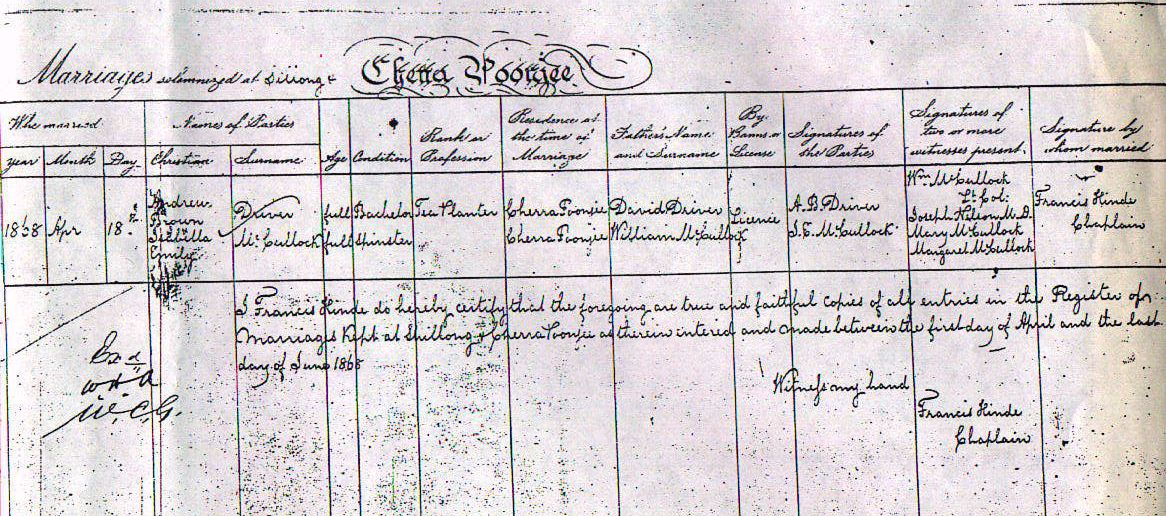 Marriages solemnized at Sillong & Cherra Poonjee
When married Names of Parties Age Condition Rank or Profession Residence at the time of Marriage Father's Name and Surname By Banns or License Signatures of the Parties Signatures of two or more witnesses present. Signature by whom married
year Month Day Christian Surname
1868 Apr 18th Andrew Brown Driver full Bachelor Tea Planter Cherra Poonjee David Driver Licence A.B. Driver Wm McCullock Lt Col: Francis Hinde Chaplain
Isabilla Emily McCullock full Spinster Cherra Poonjee William McCullock I.E. McCullock Joseph Hilson M.D. Mary McCullock Margaret McCullock
I Francis Hinde do hereby certify that the foregoing are true and faithful copies of all entries in the Register of
Marriages Kept at Shillong & Cherra Poonjee as therein intered and made between the first day of April and the last
day of June 1868
Witness my hand
Francis Hinde
Chaplain
Exd
W.C.G.